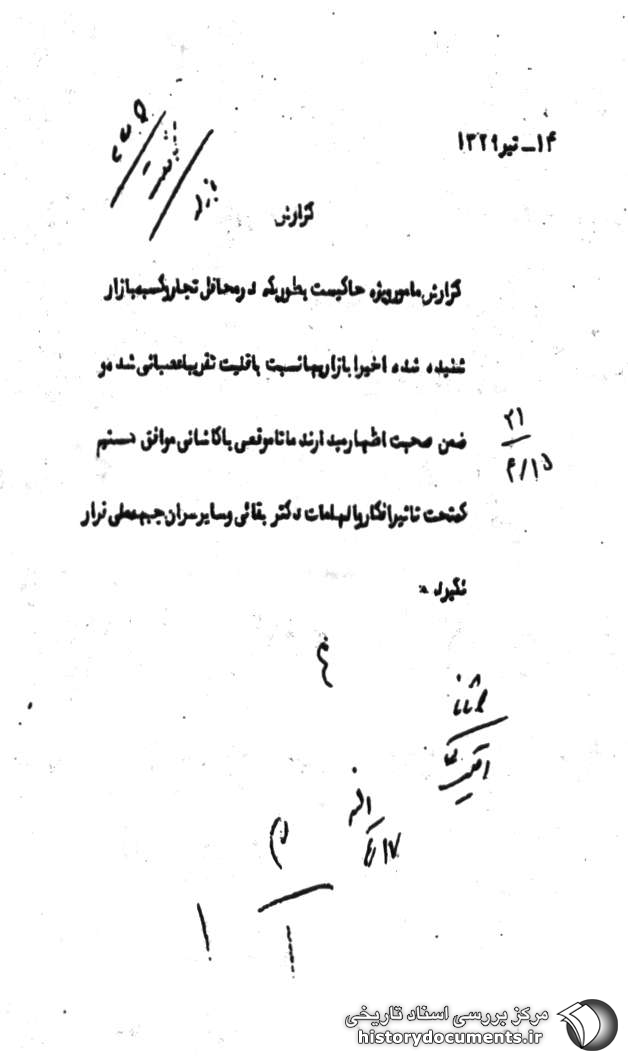 ۱۴ـ تیر ۱۳۲۹
گزارش
گزارش مامور ویژه حاکیست بطوریکه در محافل تجار و کسبه بازار
شنیده شده اخیرا بازاریها نسبت باقلیت تقریبا عصبانی شده و
ضمن صحبت اظهار میدارند ما تا موقعی با کاشانی موافق هستیم
که تحت تاثیر افکار و الهامات دکتر بقائی و سایر سران جبهه ملی قرار
نگیرد
۲۱
۴/۱۵
اقلیت
۴/۱۷
مرکز بررسی اسناد تاریخی
historydocuments.ir